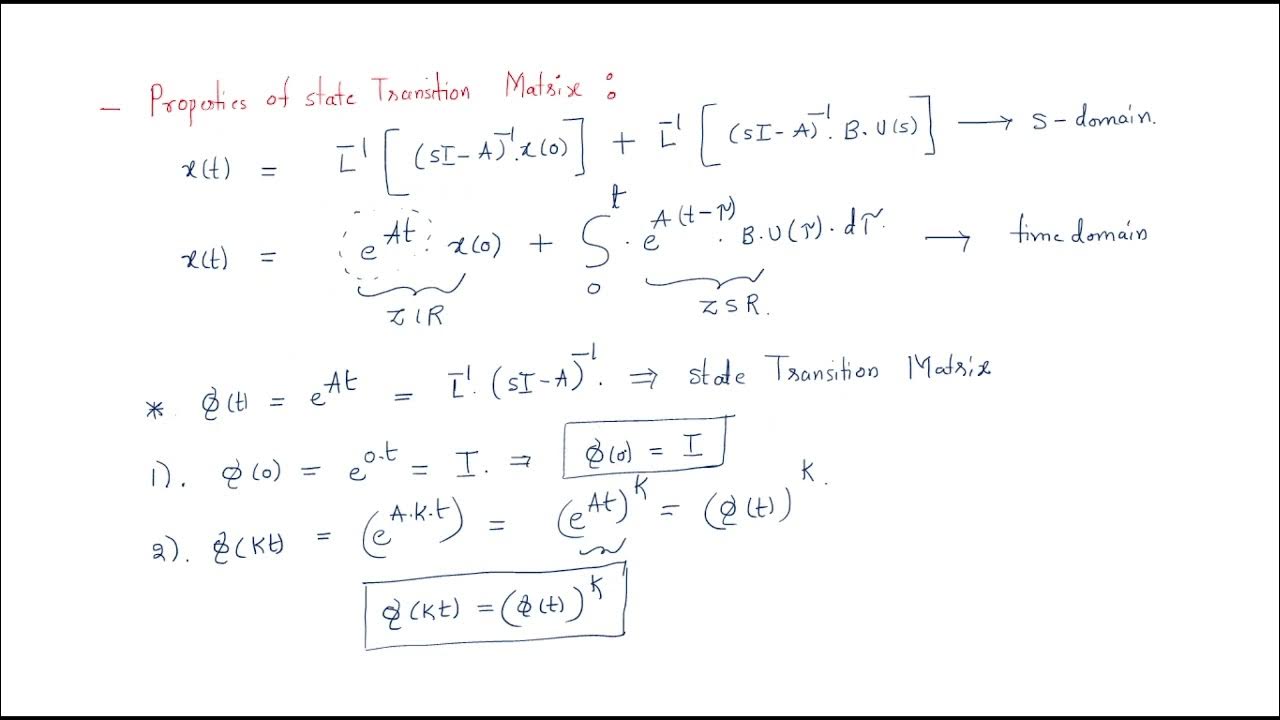 – Properties of state Transition Matrix :
x(t) = L⁻¹ [(sI–A)⁻¹.x(0)] + L⁻¹ [(sI–A)⁻¹. B.U(s)] → S-domain.
x(t) = e^{At}. x(0) + ∫₀ᵗ . e^{A(t–τ)}. B.U(τ).dτ. → time domain
ZIR ZSR.
* φ(t) = e^{At} = L⁻¹. (sI–A)⁻¹. ⇒ state Transition Matrix
1). φ(0) = e^{0.t} = I. ⇒ φ(0) = I
2). φ(Kt) = (e^{A.K.t}) = (e^{At})^K = (φ(t))^K.
φ(Kt) = (φ(t))^K